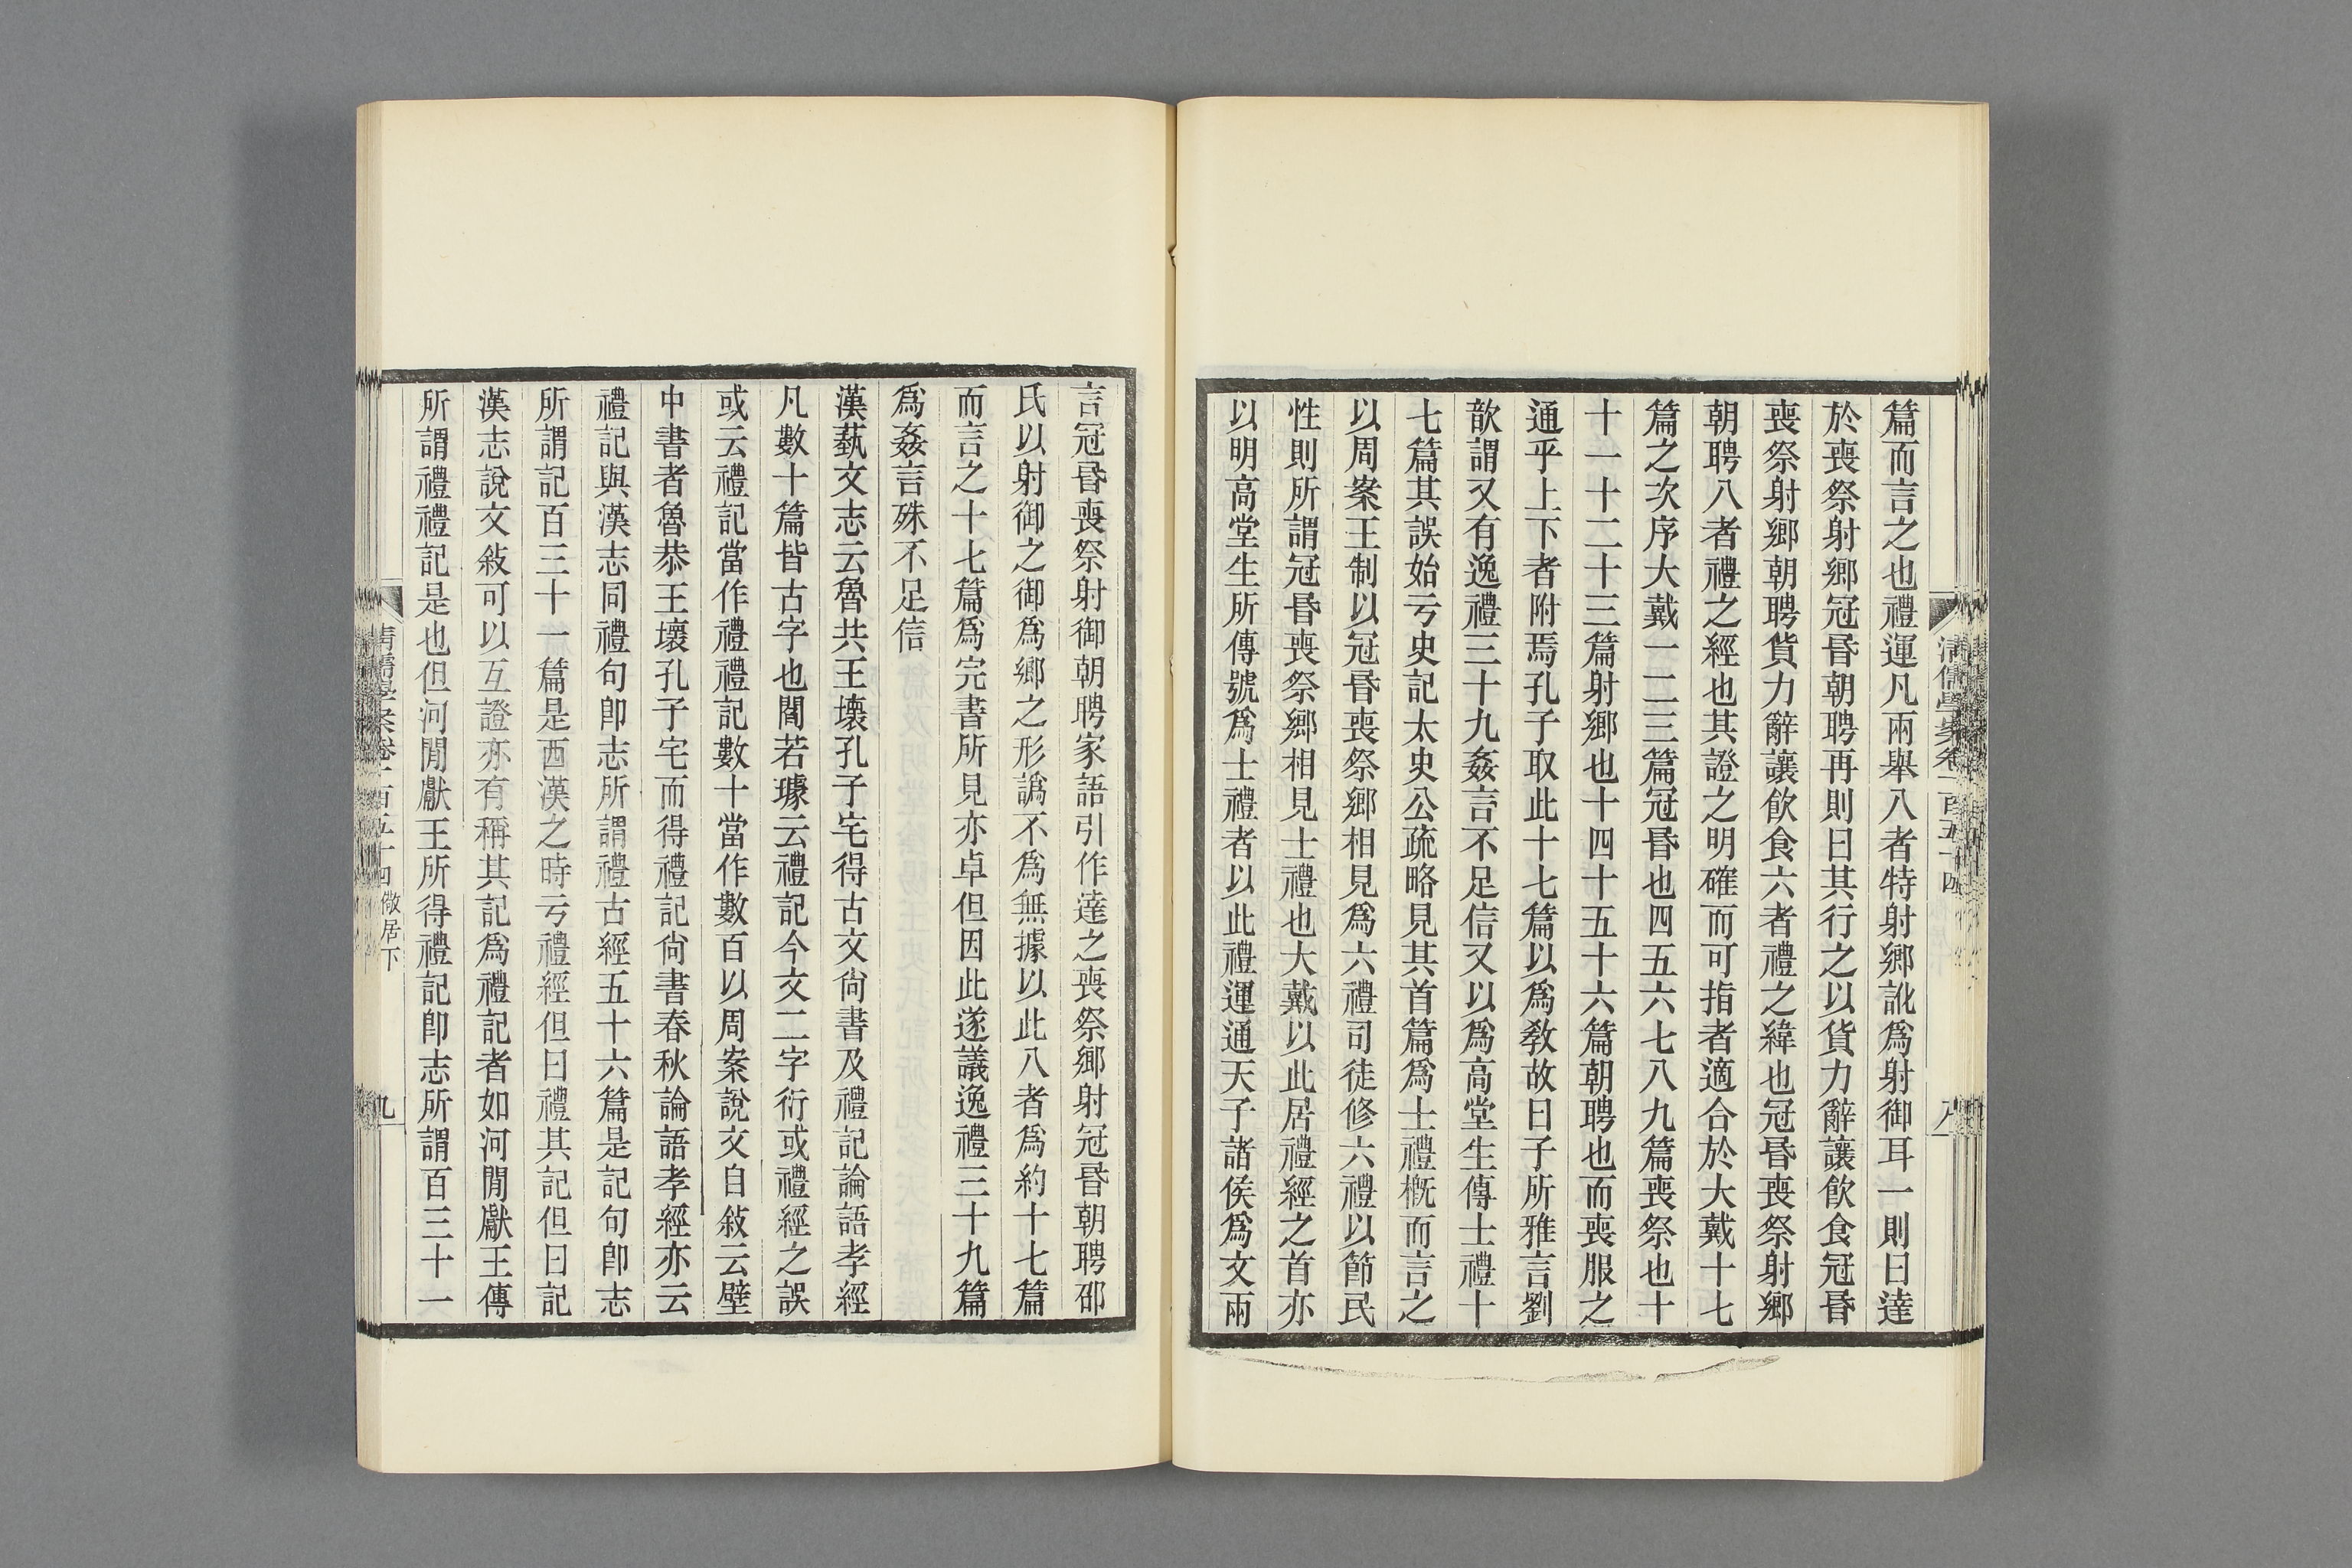 篇而言之也禮運凡兩舉八者特射鄉訛爲射御耳一則曰達
於喪祭射鄉冠昏朝聘再則曰其行之以貨力辭讓飮食冠昏
喪祭射鄉朝聘貨力辭讓飮食六者禮之緯也冠昏喪祭射鄉
朝聘八者禮之經也其證之明確而可指者適合於大戴十七
篇之次序大戴一二三篇冠昏也四五六七八九篇喪祭也十
十一十二十三篇射鄉也十四十五十六篇朝聘也而喪服之
通乎上下者附焉孔子取此十七篇以爲敎故曰子所雅言劉
歆謂又有逸禮三十九姦言不足信又以爲高堂生傳士禮十
七篇其誤始亏史記太史公疏略見其首篇爲士禮槪而言之
以周案王制以冠昏喪祭鄉相見爲六禮司徒修六禮以節民
性則所謂冠昏喪祭鄉相見士禮也大戴以此居禮經之首亦
以明高堂生所傳號爲士禮者以此禮運通天子諸侯爲文兩
清儒學案卷一百五十四
八
言冠昏喪祭射御朝聘家語引作達之喪祭鄉射冠昏朝聘邵
氏以射御之御爲鄉之形譌不爲無據以此八者爲約十七篇
而言之十七篇爲完書所見亦卓但因此遂議逸禮三十九篇
爲姦言殊不足信
漢蓺文志云魯共王壞孔子宅得古文尙書及禮記論語孝經
凡數十篇皆古字也閻若璩云禮記今文二字衍或禮經之誤
或云禮記當作禮禮記數十當作數百以周案說文自敍云壁
中書者魯恭王壞孔子宅而得禮記尙書春秋論語孝經亦云
禮記與漢志同禮句卽志所謂禮古經五十六篇是記句卽志
所謂記百三十一篇是西漢之時亏禮經但曰禮其記但曰記
漢志說文敍可以互證亦有稱其記爲禮記者如河閒獻王傳
所謂禮禮記是也但河閒獻王所得禮記卽志所謂百三十一
清儒學案卷一百五十四 儆居下
九